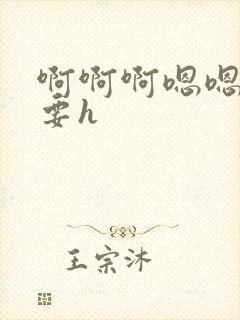 啊啊啊嗯嗯
要h
王宗沐